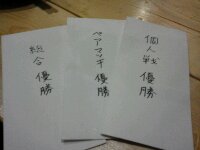 個人戦
優勝
ペアマッチ
優勝
総合
優勝